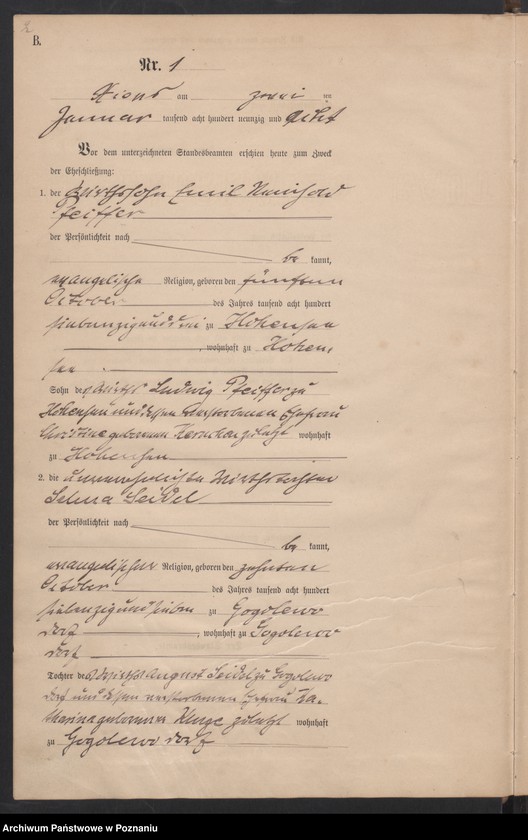 2
B.
Nr. 1
Xions am zwei ten
Januar tausend acht hundert neunzig und acht
Vor dem unterzeichneten Standesbeamten erschien heute zum Zweck
der Eheschließung:
1. der Wirthssohn Emil Reinhold
Pfeiffer
der Persönlichkeit nach
be kannt,
evangelischer Religion, geboren den fünften
October des Jahres tausend acht hundert
siebenzig und drei zu Hohensee
, wohnhaft zu Hohen
see
Sohn des Wirths Ludwig Pfeiffer zu
Hohensee und dessen verstorbenen Ehefrau
Christine geborenen zuletzt wohnhaft
zu Hohensee
2. die unverehelichte Wirthstochter
Selma Seidel
der Persönlichkeit nach
be kannt,
evangelischer Religion, geboren den zehnten
October des Jahres tausend acht hundert
siebenzig und sieben zu Gogolewo
dorf , wohnhaft zu Gogolewo
dorf
Tochter des Wirths August Seidel zu Gogolewo
dorf und dessen verstorbenen Ehefrau Ka-
tharina geborenen Kluge zuletzt wohnhaft
zu Gogolewo dorf
Archiwum Państwowe w Poznaniu